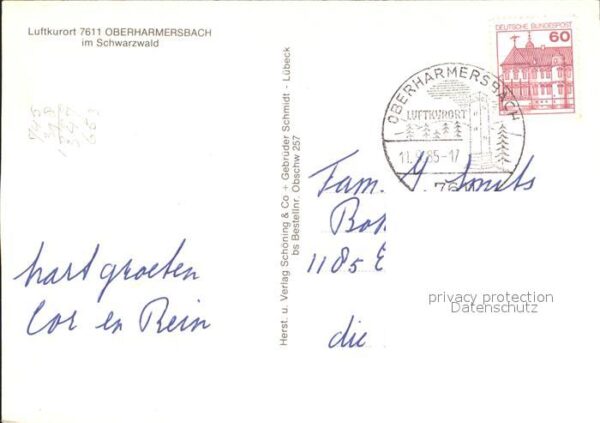 Luftkurort 7611 OBERHARMERSBACH
im Schwarzwald
hart groeten
Cor en Rein
Herst. u. Verlag Schöning & Co + Gebrüder Schmidt - Lübeck
bs Bestellnr. Obschw 257
DEUTSCHE BUNDESPOST
60
OBERHARMERSBACH
LUFTKURORT
11.9.85-17
76
Fam.
1185 E
die
privacy protection
Datenschutz